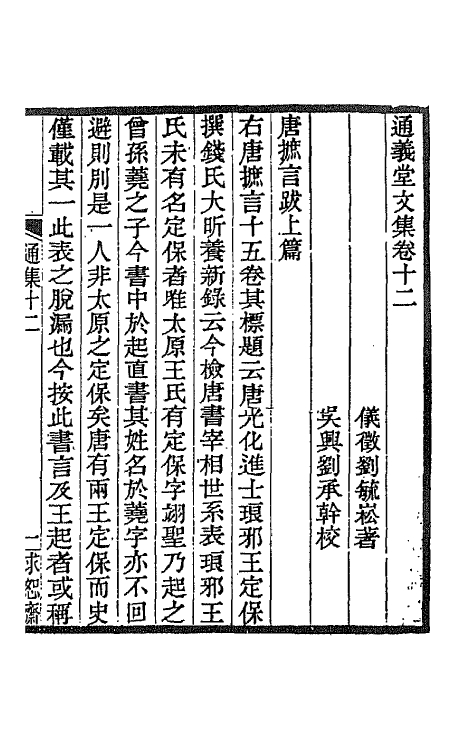 通義堂文集卷十二
儀徵劉毓崧著
吳興劉承幹校
唐摭言跋上篇
右唐摭言十五卷其標題云唐光化進士琅邪王定保
撰錢氏大昕養新錄云今檢唐書宰相世系表琅邪王
氏未有名定保者惟太原王氏有定保字翊聖乃起之
曾孫蕘之子今書中於起直書其姓名於蕘字亦不回
避則別是一人非太原之定保矣唐有兩王定保而史
僅載其一此表之脫漏也今按此書言及王起者或稱
通集十二
一求恕齋